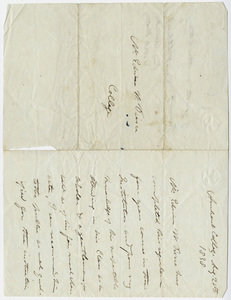 Mr Edwin W. Pierce
College
Amherst College Aug 20th
1838
Mr Edwin W. Pierce has
completed the regular
four years course in this
Institution and from my
knowledge of his respectable
standing in his Class as a
scholar & a gentleman, as
well as of his fair moral char
acter, I can recommend him
to the public as well qual-
ified for the instruction